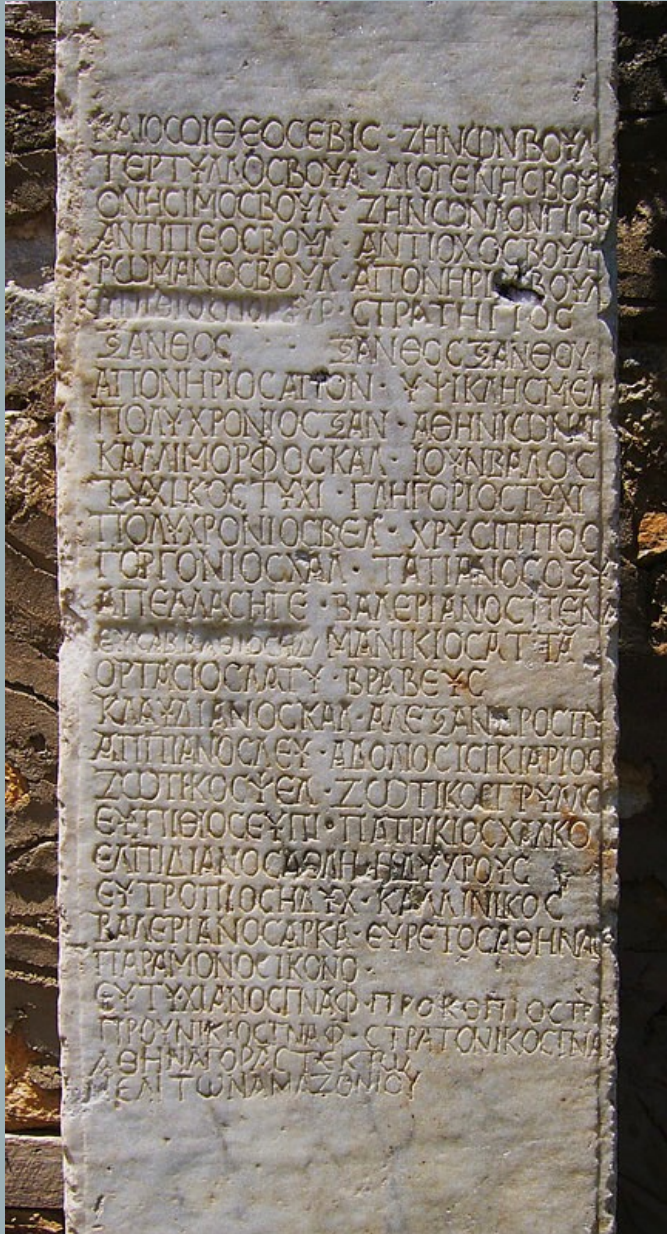 ΚΑΙΟCΟΙΘΕΟCΕΒΙC · ΖΗΝΩΝΒΟΥΛ
ΤΕΡΤΥΛΛΟCΒΟΥΛ · ΔΙΟΓΕΝΗCΒΟΥΛ
ΟΝΗCΙΜΟCΒΟΥΛ · ΖΗΝΩΝΛΟΝΓΙΒΟ
ΑΝΤΙΠΕΟCΒΟΥΛ · ΑΝΤΙΟΧΟCΒΟΥΛ
ΡΩΜΑΝΟCΒΟΥΛ · ΑΠΟΝΗΡΙC ΒΟΥΛ
ΥΡ · CΤΡΑΤΗΓΙΟC
ΞΑΝΘΟC · ΞΑΝΘΟCΞΑΝΘΟΥ
ΑΠΟΝΗΡΙΟCΑΠΟΝ · ΥΨΙΚΛΗCΜΕΛ
ΠΟΛΥΧΡΟΝΙΟCΞΑΝ · ΑΘΗΝΙΩΝΑΙ
ΚΑΛΛΙΜΟΡΦΟCΚΑΛ · ΙΟΥΝΒΑΛΟC
ΤΥΧΙΚΟCΤΥΧΙ · ΓΛΗΓΟΡΙΟCΤΥΧΙ
ΠΟΛΥΧΡΟΝΙΟCΒΕΛ · ΧΡΥCΙΠΠΟC
ΓΟΡΓΟΝΙΟCΧΑΛ · ΤΑΤΙΑΝΟCΟΞΥ
ΑΠΕΛΛΑCΗΓΕ · ΒΑΛΕΡΙΑΝΟCΠΕΝΑ
ΕΥCΑΒΒΑΘΙΟCΗΔΥ ΜΑΝΙΚΙΟCΑΤΤΑ
ΟΡΤΑCΙΟCΛΑΤΥ · ΒΡΑΒΕΥC
ΚΛΑΥΔΙΑΝΟCΚΑΛ · ΑΛΕΞΑΝΔΡΟCΠΥ
ΑΠΠΙΑΝΟCΛΕΥ · ΑΔΟΛΙΟCΙCΙΚΙΑΡΙΟC
ΖΩΤΙΚΟCΨΕΛ · ΖΩΤΙΚΟCΓΡΥΛΛΟ
ΕΥΠΙΘΙΟCΕΥΠΙ · ΠΑΤΡΙΚΙΟCΧΑΛΚΟ
ΕΛΠΙΔΙΑΝΟCΑΘΛΗ · ΗΔΥΧΡΟΥC
ΕΥΤΡΟΠΙΟCΗΔΥΧ · ΚΑΛΛΙΝΙΚΟC
ΒΑΛΕΡΙΑΝΟCΑΡΚΑ · ΕΥΡΕΤΟCΑΘΗΝΑΓ
ΠΑΡΑΜΟΝΟCΙΚΟΝΟ ·
ΕΥΤΥΧΙΑΝΟCΓΝΑΦ · ΠΡΟΚΟΠΙΟCΤΡ
ΠΡΟΥΝΙΚΙΟCΓΝΑΦ · CΤΡΑΤΟΝΙΚΟCΓΝΑ
ΑΘΗΝΑΓΟΡΑCΤΕΚΤΩ
ΜΕΛΙΤΩΝΑΜΑΖΟΝΙΟΥ